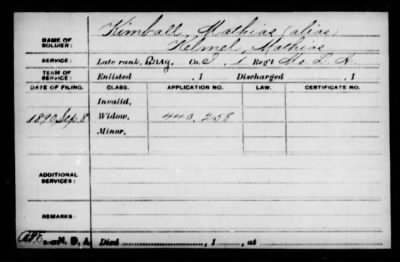 NAME OF SOLDIER: Kimball, Mathias (alias)
Kelmel, Mathias
SERVICE: Late rank, Co. I, 1 Reg't Mo L. A.
TERM OF SERVICE: Enlisted , 1 Discharged , 1
DATE OF FILING. CLASS. APPLICATION NO. LAW. CERTIFICATE NO.
Invalid,
1890 Sep. 8 Widow, 440.258
Minor,
ADDITIONAL SERVICES:
REMARKS:
Died , 1 , at